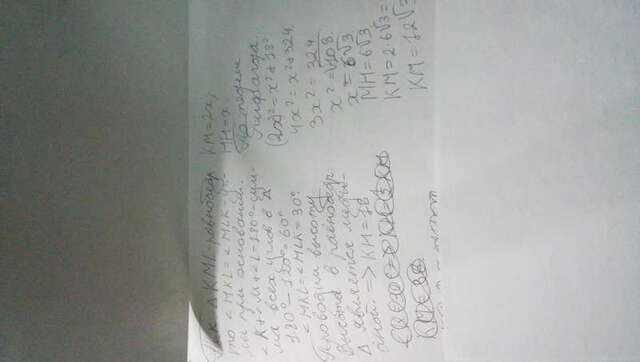 Так △KML-равнобед
то <MKL=<MLK-уг-
лы при основании.
<K+<M+<L=180°-сум-
ма всех углов в △
180°-120°=60°
<MKL=<MLK=30°.
Проводим высоту
Высота в равнобедр
△ является медиа-
ной. => KH=18
KM=2x,
MH=x.
По теореме
Пифагора.
(2x)²=x²+18²
4x²=x²+324
3x²=324
x²=√108
x=6√3
MH=6√3
KM=2·6√3=
KM=12√3